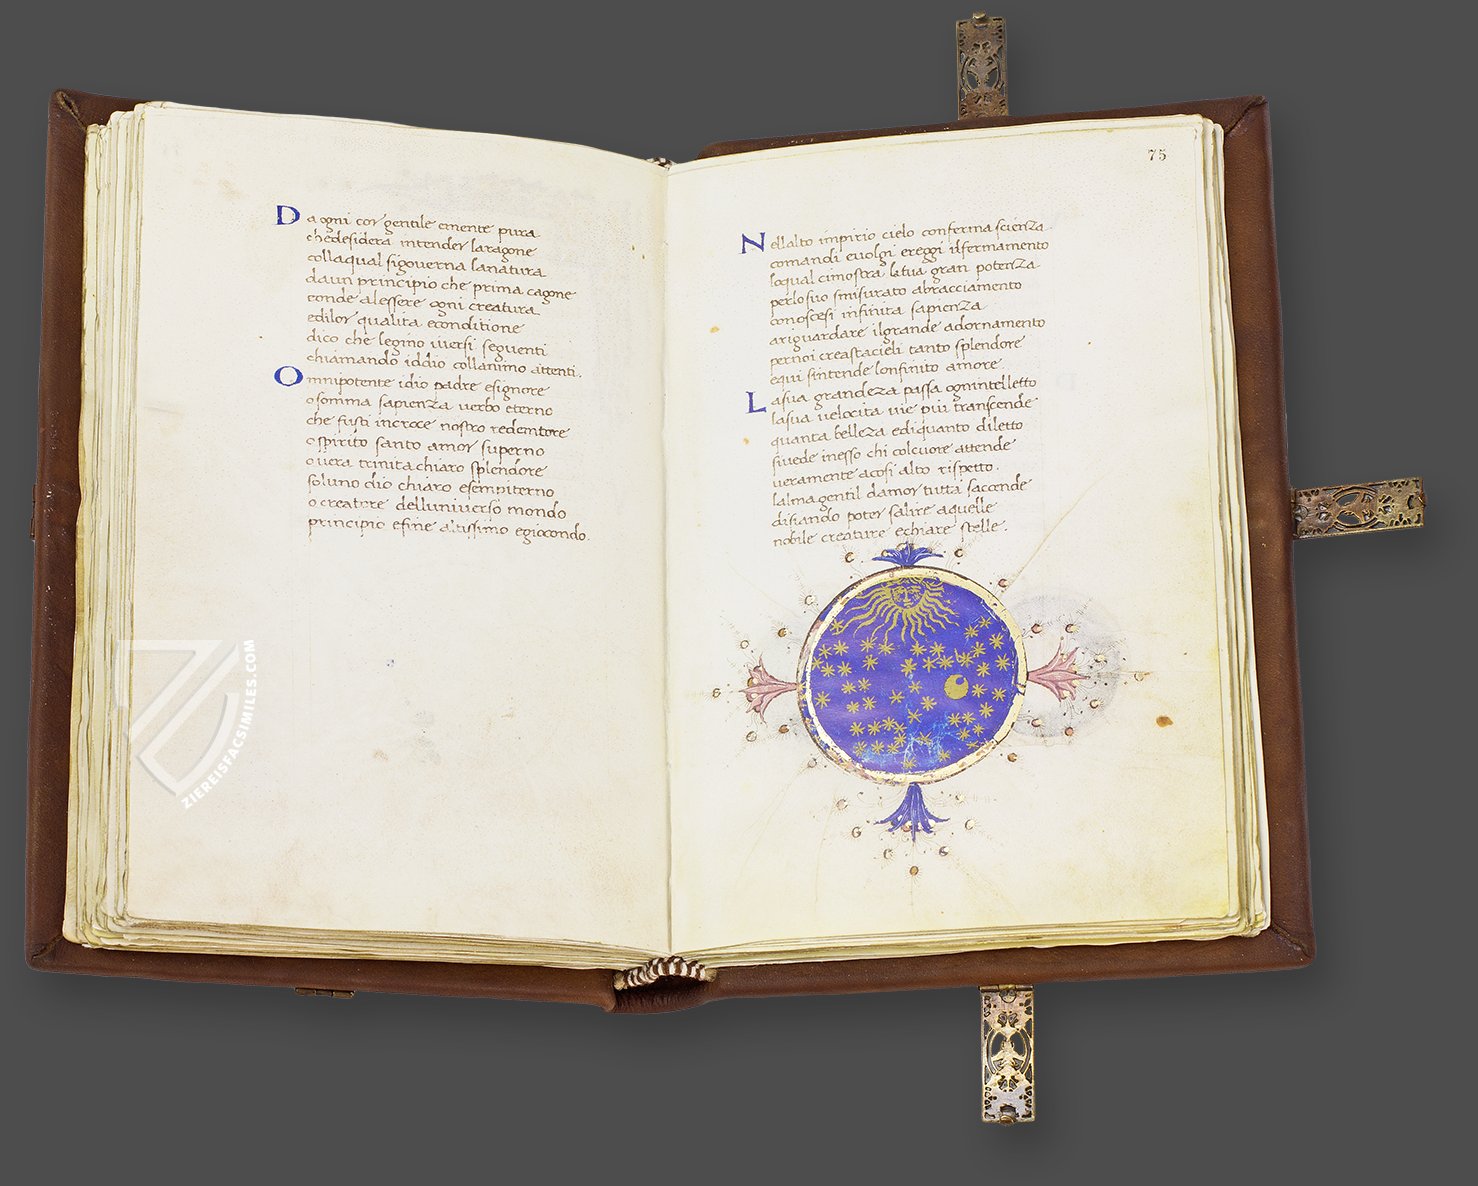 Da ogni cor gentile emente pura
chedesidera intender laragone
collaqual sigouerna lanatura
daun principio che prima cagone
eonde alessere ogni creatura
edilor qualita econditione
dico che legino iuersi seguenti
chiamando iddio collanimo attenti.
Omnipotente idio padre esignore
osomma sapienza uerbo eterno
che fusti incroce nostro redentore
ospirito santo amor superno
ouera trinita chiaro splendore
soluno dio chiaro esempiterno
o creatore delluniuerso mondo
principio efine altissimo egiocondo.
ZIEREISFACSIMILES.COM
75
Nellalto impirio cielo conferma scienza
comandi euolgi ereggi ilfermamento
loqual cimostra latua gran potenza
perlosuo smisurato abracciamento
conoscesi infinita sapienza
ariguardare ilgrande adornamento
pernoi creastacieli tanto splendore
equi sintende lonfinito amore.
Lasua grandeza passa ognintelletto
lasua uelocita uie piu transcende
quanta belleza ediquanto diletto
siuede inesso chi colcuore attende
ueramente acosi alto rispetto.
lalma gentil damor tutta saccende
disiando poter salire aquelle
nobile creature echiare stelle.